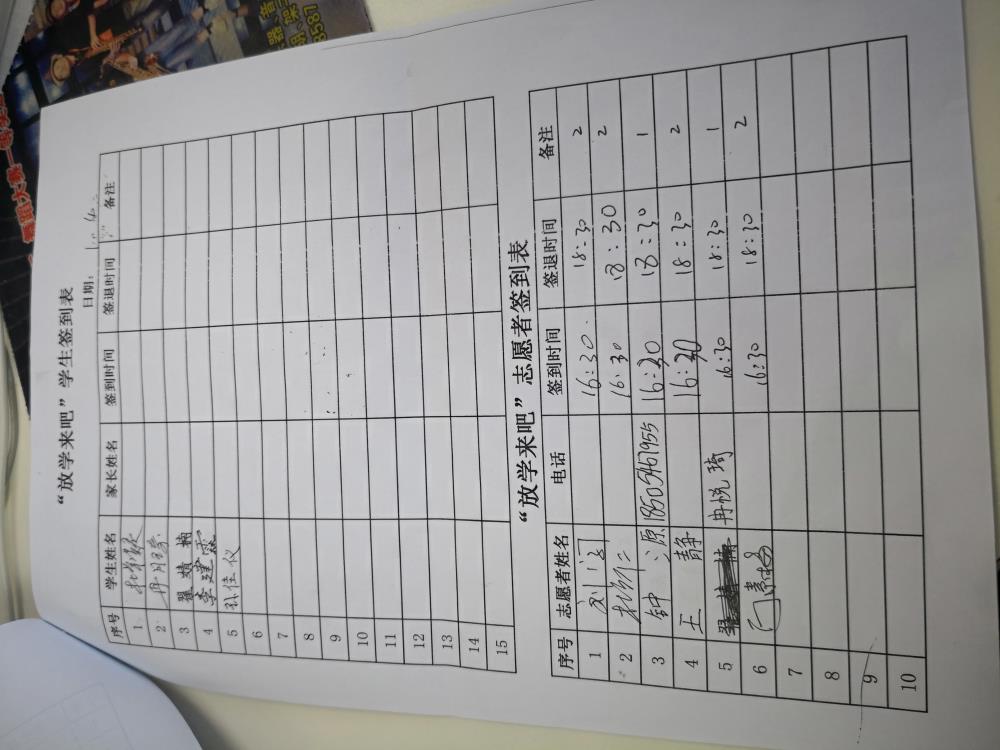 “放学来吧”学生签到表
日期：
序号 学生姓名 家长姓名 签到时间 签退时间 备注
1
2
3 翟婧楠
4 李建霖
5 孙佳仪
6
7
8
9
10
11
12
13
14
15
“放学来吧”志愿者签到表
序号 志愿者姓名 电话 签到时间 签退时间 备注
1 16:30. 18:30 2
2 16:30 18:30 2
3 钟源 18505461955 16:30 18:30 1
4 王静 16:30 18:30 2
5 冉悦琦 16:30 18:30 1
6 16:30 18:30 2
7
8
9
10
8587